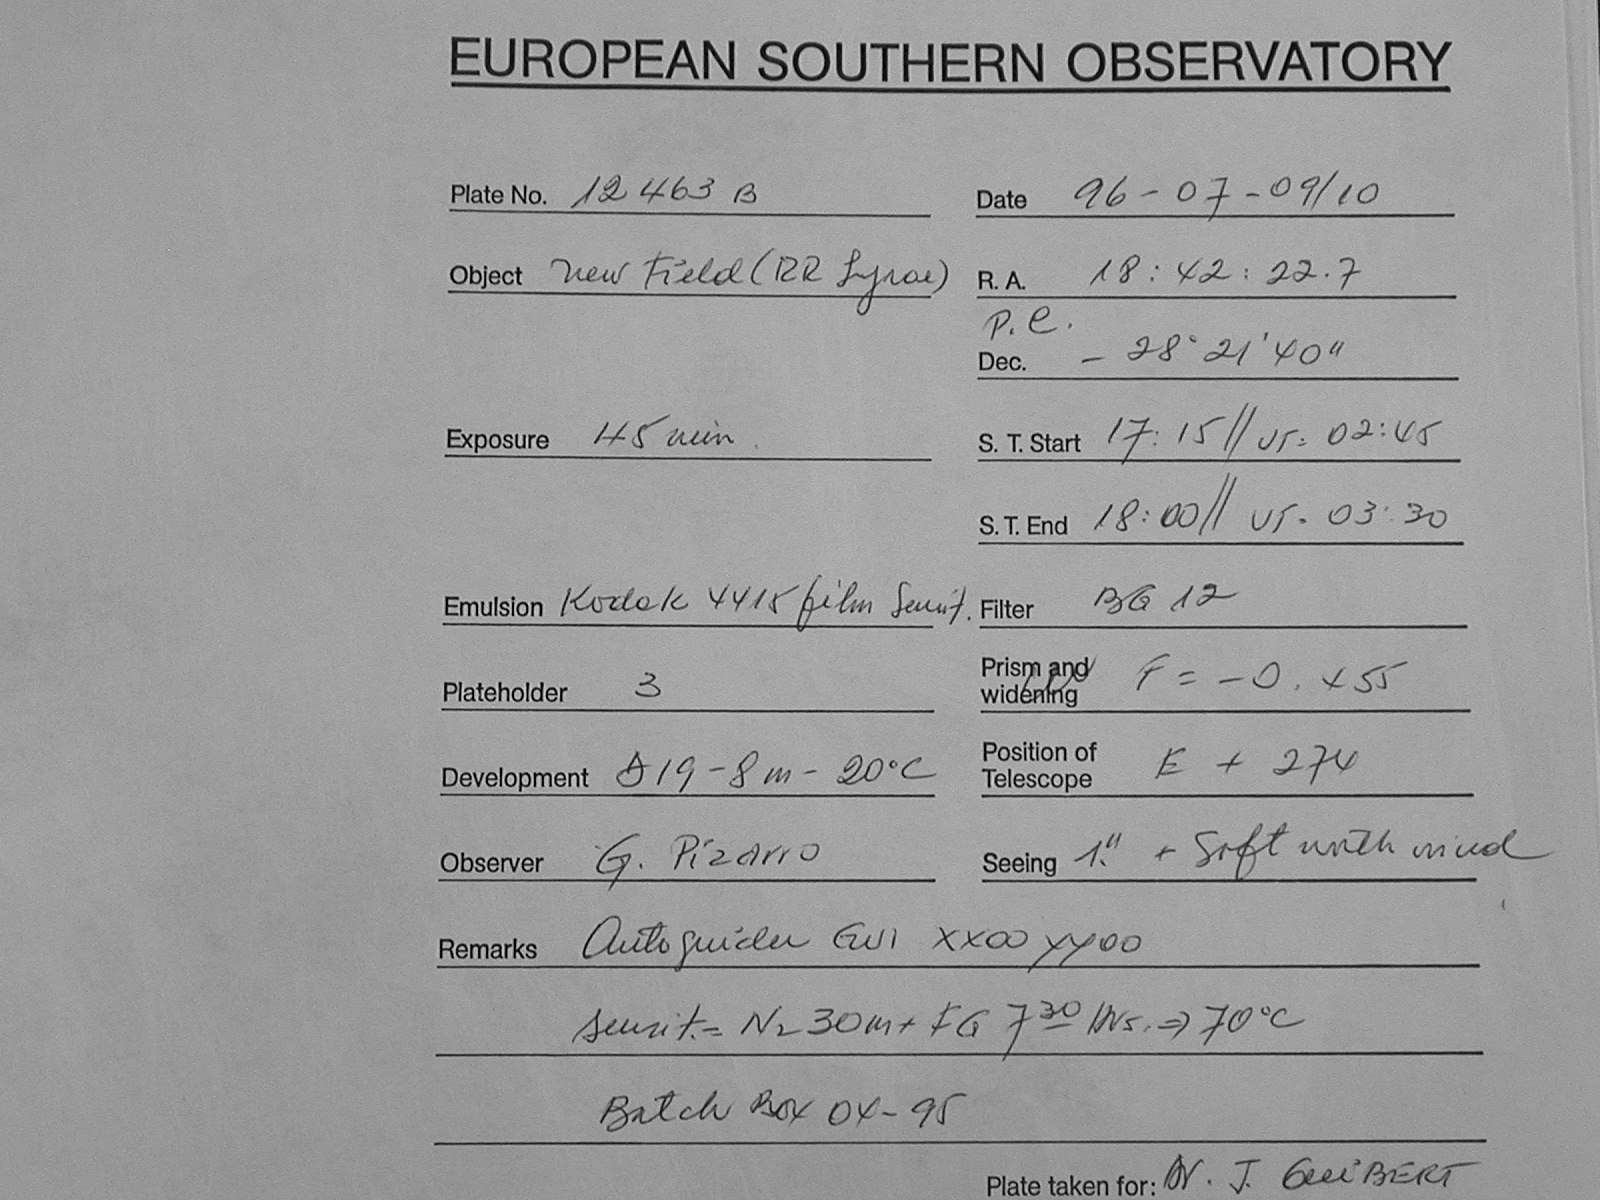 EUROPEAN SOUTHERN OBSERVATORY
Plate No. 12463 B Date 96-07-09/10
Object New Field (RR Lyrae) R. A. 18:42:22.7
P.C.
Dec. -28°21'40"
Exposure 45 min. S. T. Start 17:15// UT= 02:45
S. T. End 18:00// UT- 03:30
Emulsion Kodak 4415 film Sensit. Filter BG 12
Plateholder 3 Prism and widening F = -0.455
Development D19-8m-20°C Position of Telescope E + 274
Observer G. Pizarro Seeing 1." + Soft with wind
Remarks Autoguider XX00 YY00
Sensit.= N2 30m + FG 7 30 Hrs. ⇒ 70°C
Batch Box 04-95
Plate taken for: Dr. J. GuiBERT